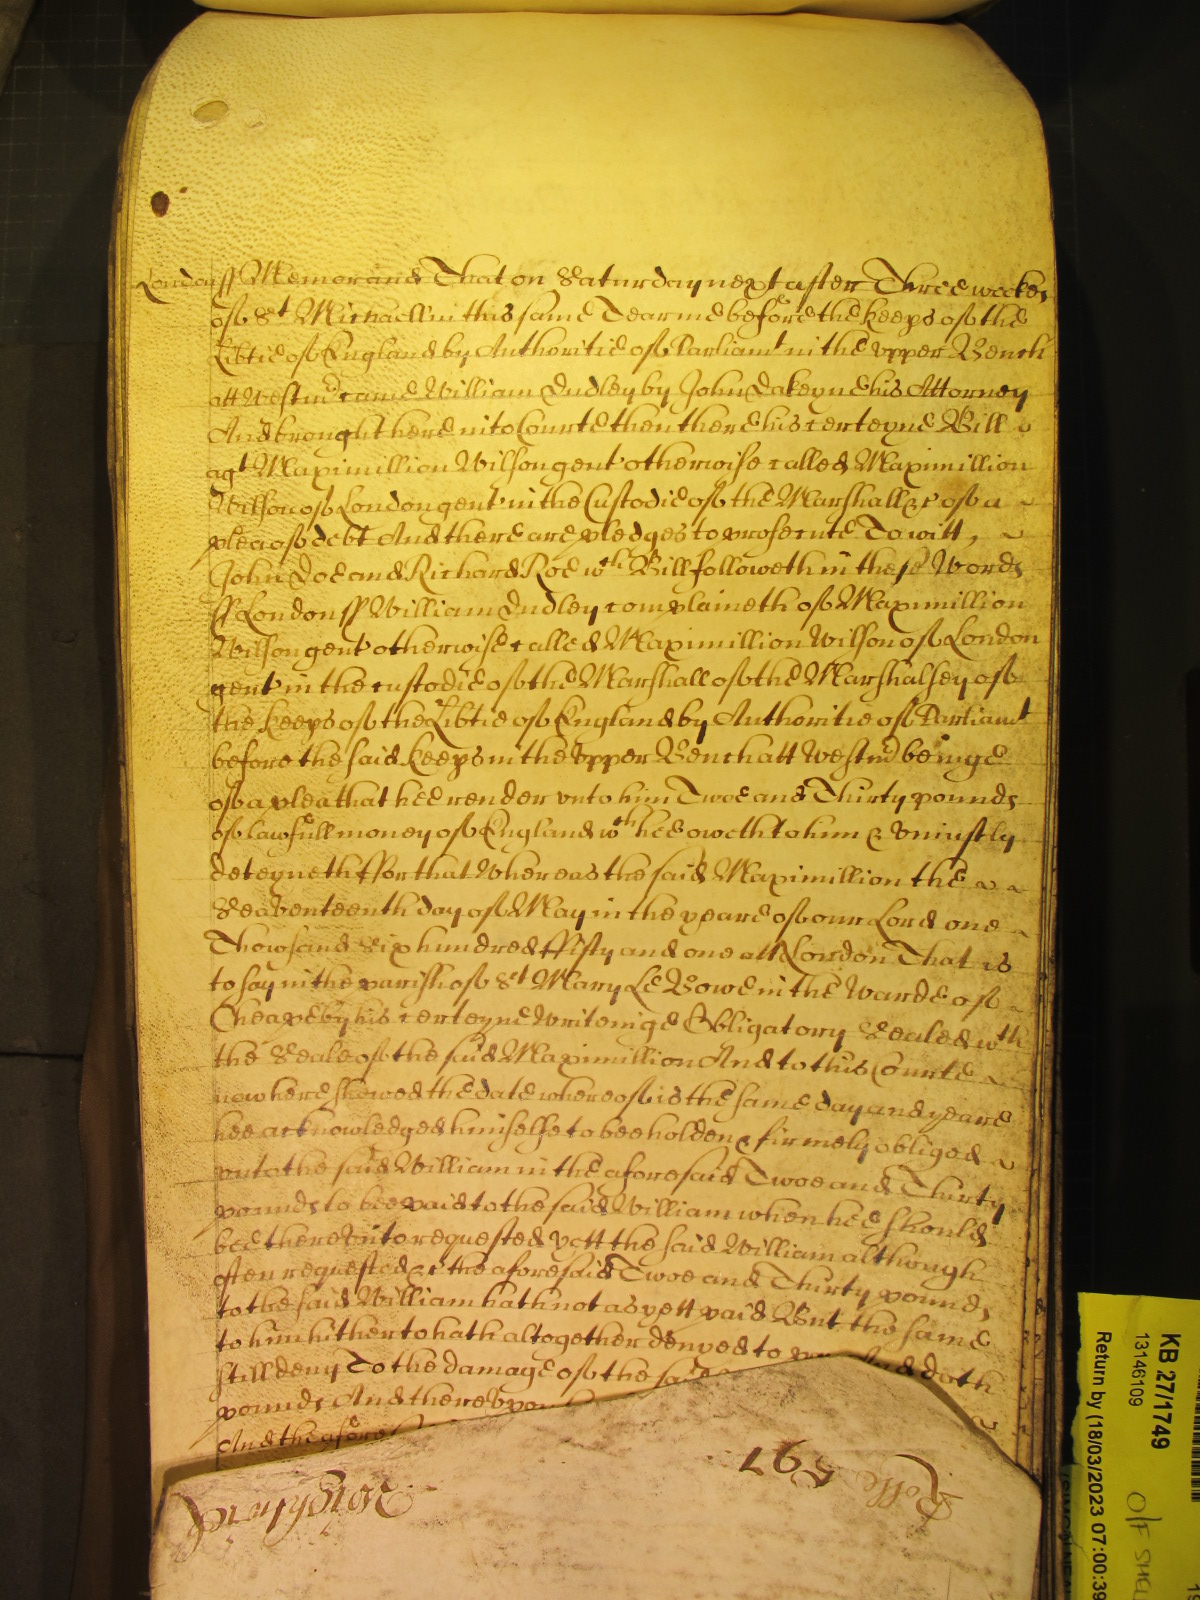 London ss Memorand That on Saturday next after Three weekes
of St Michaell in this same Tearme before the keeps of the
Libtie of England by Authoritie of Parliamt in the vpper Bench
att Westm came William Dudley by John Dakeyne his Attorney
And brought here into Courte then there his certeyne Bill
agt Maximillion Wilson gent otherwise called Maximillion
Wilson of London gent in the Custodie of the Marshall &c of a
plea of debt And there are pledges to prosecute To witt,
John Doe and Richard Roe wch Bill followeth in these Words
ss London ss William Dudley complaineth of Maximillion
Wilson gent otherwise called Maximillion Wilson of London
gent in the custodie of the Marshall of the Marshalsey of
the keeps of the Libtie of England by Authoritie of Parliamt
before the said keeps in the vpper Bench att Westm beinge
of a plea that hee render vnto him Twoe and Thirty pounds
of lawfull money of England wch hee oweth to him & vniustly
deteyneth ffor that Whereas the said Maximillion the
Seaventeenth day of May in the yeare of our Lord one
Thowsand Six hundred ffifty and one att London That is
to say in the parish of St Mary Le Bowe in the Warde of
Cheape by his certeyne Writeinge Obligatory Sealed wth
the Seale of the said Maximillion And to this Courte
now here shewed the date whereof is the same day and yeare
hee acknowledged himselfe to bee holden & firmely obliged
vnto the said William in the aforesaid Twoe and Thirty
pounds to bee paid to the said William when hee should
bee therevnto requested yett the said William although
often requested &c the aforesaid Twoe and Thirty pounds
to the said William hath not as yett paid But the same
to him hitherto hath altogether denyed to pay And doth
still deny To the damage of the said
pounds And therevpon
And the afores
Rolle 797